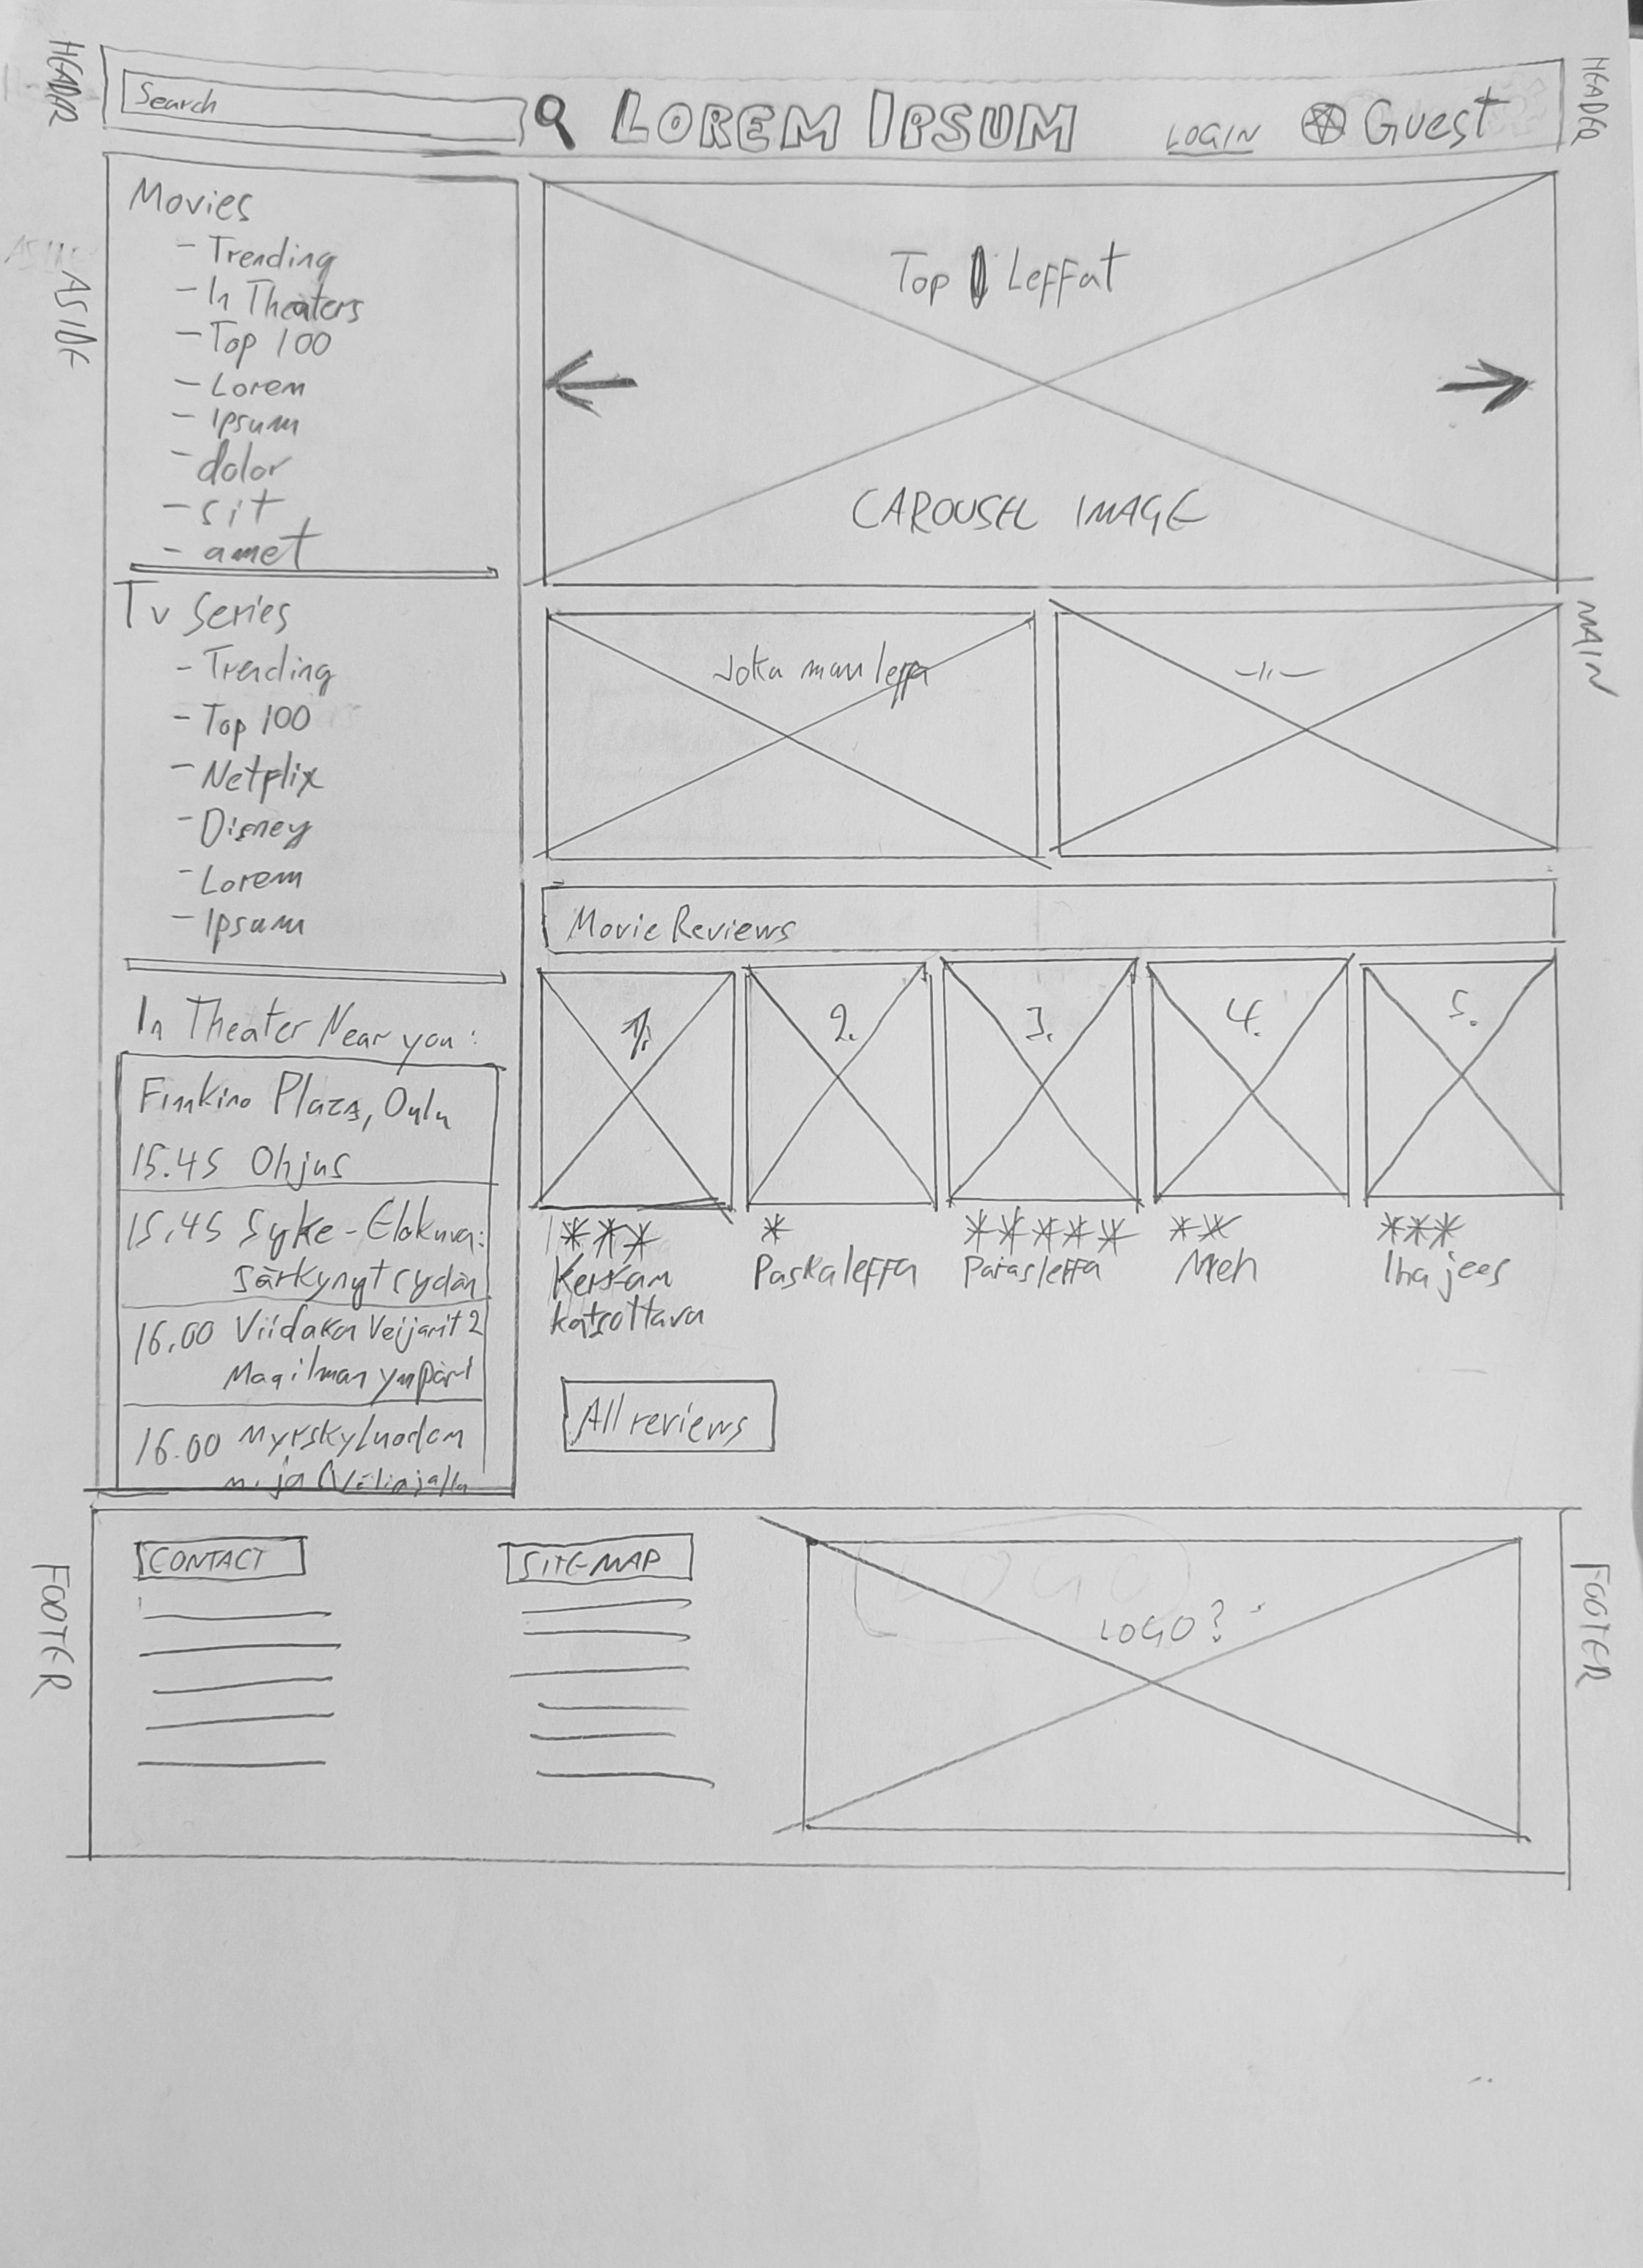 HEADER
HEADER
Search
LOREM IPSUM
LOGIN
Guest
ASIDE
Movies
- Trending
- In Theaters
- Top 100
- Lorem
- Ipsum
- dolor
- sit
- amet
Tv Series
- Trending
- Top 100
- Netflix
- Disney
- Lorem
- Ipsum
In Theater Near you:
Finnkino Plaza, Oulu
15.45 Ohjus
15.45 Syke-Elokuva:
Särkynyt sydän
16.00 Viidakon Veijarit 2
Maailman ympäri
16.00 Myrskyluodon
MAIN
Top Leffat
CAROUSEL IMAGE
Joka muu leffa
-11-
Movie Reviews
1.
2.
3.
4.
5.
***
Kerran
katsottava
*
Paskaleffa
*****
Parasleffa
**
Meh
***
Iha jees
All reviews
FOOTER
FOOTER
CONTACT
SITEMAP
LOGO?